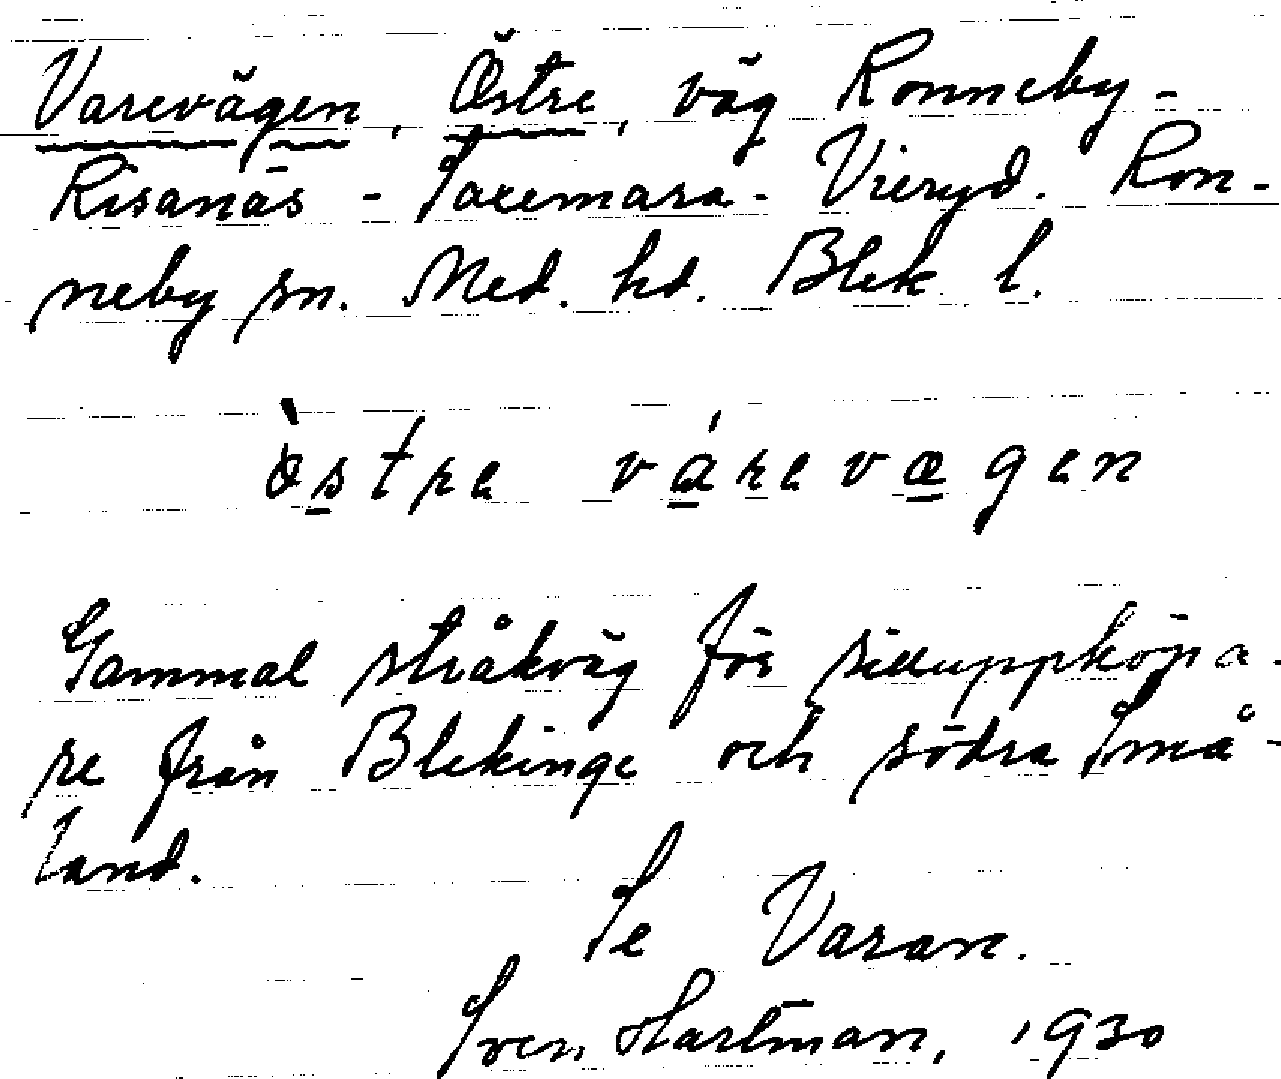 Varevägen, Östre, väg Ronneby-
Risanäs - Saxemara - Vieryd. Ron-
neby sn. Med. hd. Blek. l.
östre várevægen
Gammal stråkväg för silluppköpa-
re från Blekinge och södra Små-
land.
Se Varan.
Sven Hartman, 1930